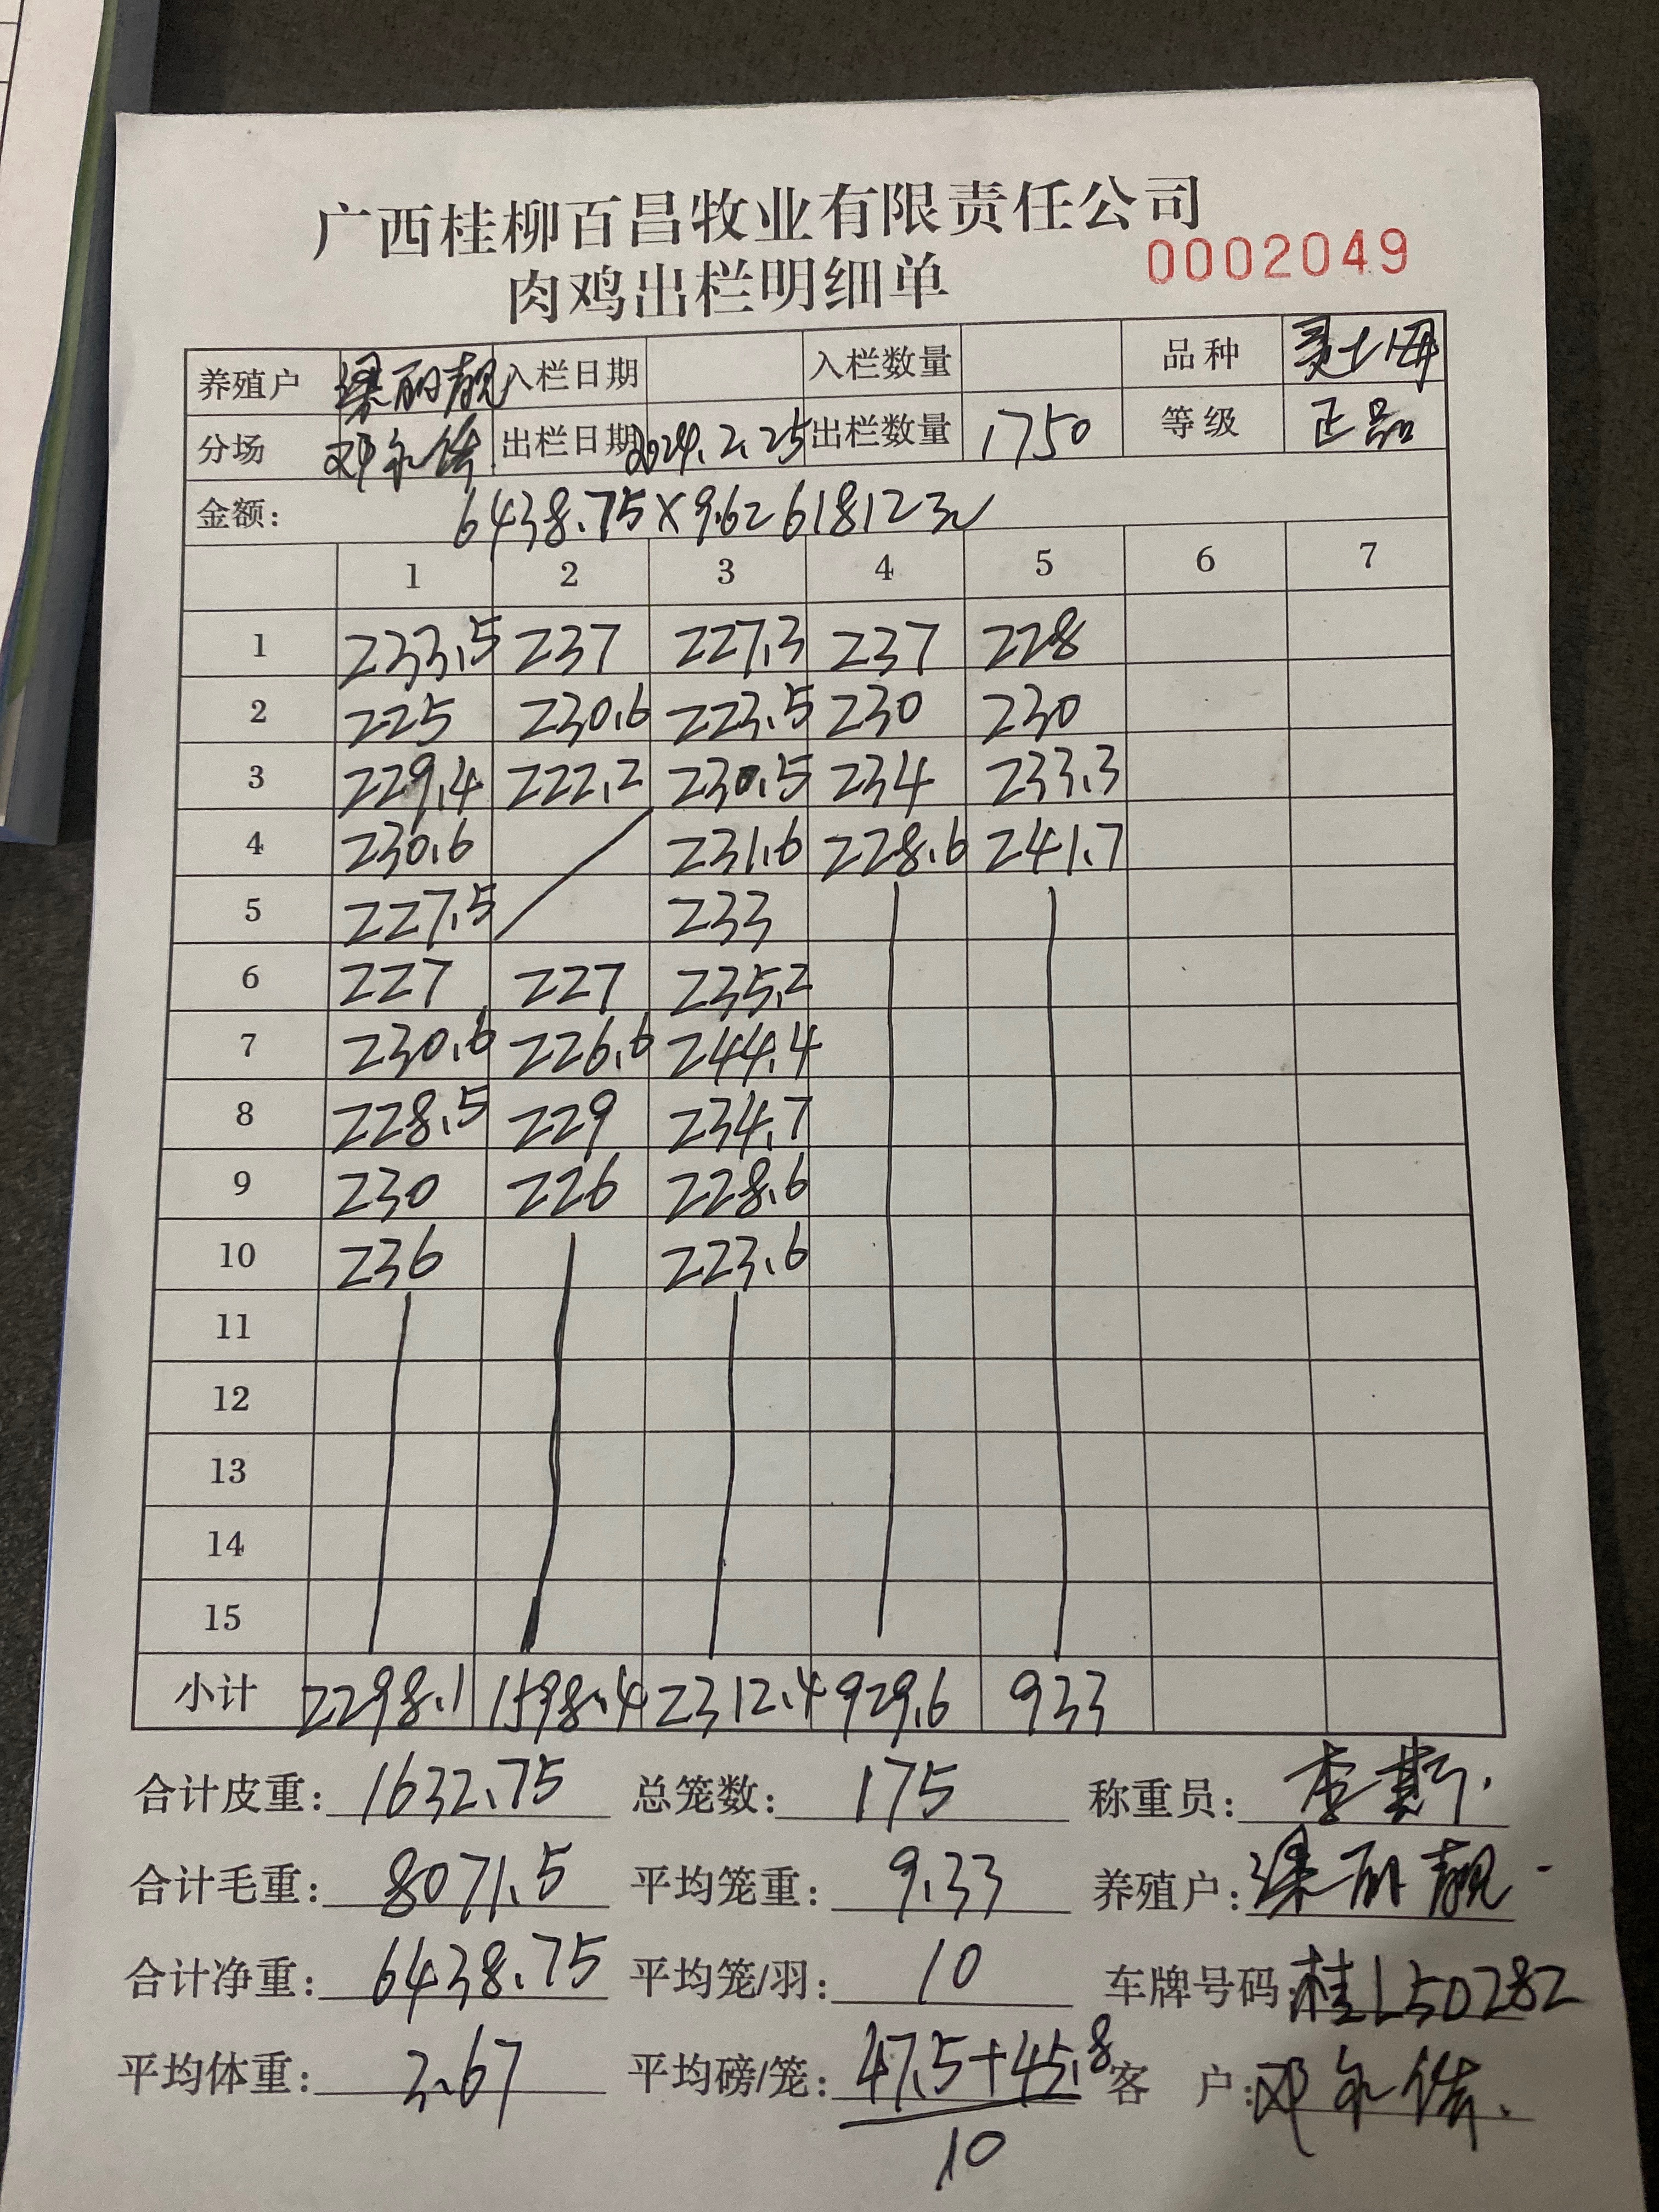 广西桂柳百昌牧业有限责任公司
肉鸡出栏明细单 0002049
养殖户 梁丽靓 入栏日期 入栏数量 品种
分场 邓 出栏日期 2024.2.25 出栏数量 1750 等级 正品
金额: 6438.75×9.6 61812元
1 2 3 4 5 6 7
1 233.5 237 227.3 237 228
2 225 230.6 223.5 230 230
3 229.4 222.2 230.5 234 233.3
4 230.6 231.6 228.6 241.7
5 227.5 233
6 227 227 235.2
7 230.6 226.6 244.4
8 228.5 229 234.7
9 230 226 228.6
10 236 223.6
11
12
13
14
15
小计 2298.1 1598.4 2312.4 929.6 933
合计皮重: 1632.75 总笼数: 175 称重员: 李斯
合计毛重: 8071.5 平均笼重: 9.33 养殖户: 梁丽靓
合计净重: 6438.75 平均笼/羽: 10 车牌号码: 桂L50282
平均体重: 3.67 平均磅/笼: 47.5+45.8 客 户: 邓
10